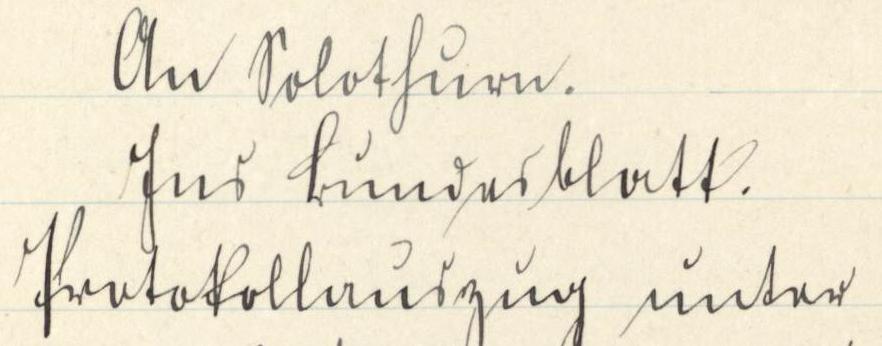 An Solothurn.
Ins Bundesblatt.
Protokollauszug unter